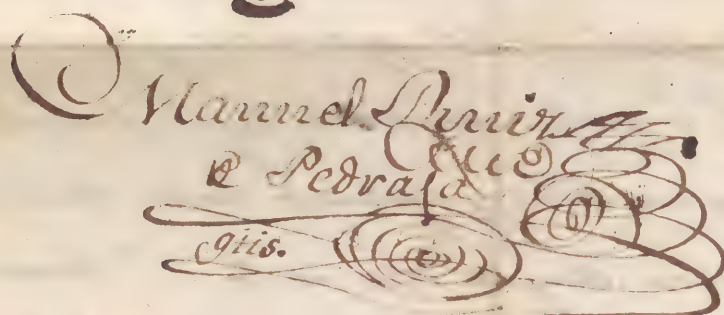 Manuel Ruiz
e Pedraja
gtis.